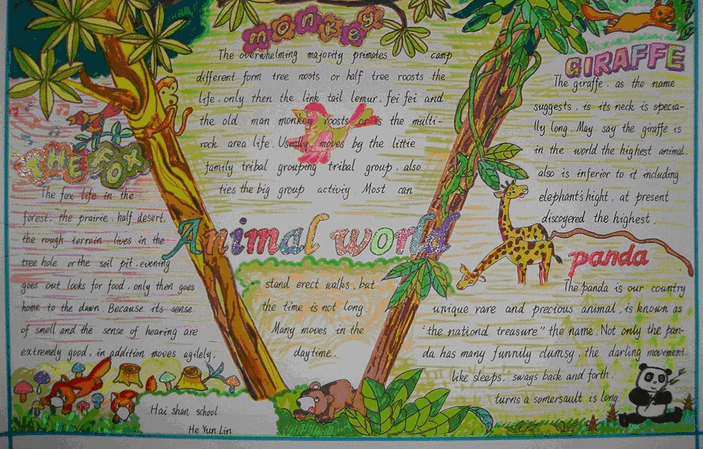 monkey
The overwhelming majority primates camp
different form tree roosts or half tree roosts the
life. only then the link tail lemur. fei fei and
the old man monkey roosts or is the multi-
rock area life. Usually moves by the little
family tribal grouping tribal group. also
ties the big group activiy. Most can
stand erect walks. but
the time is not long.
Many moves in the
daytime.
THE FOX
The fox life in the
forest. the prairie. half desert.
the rough terrain. lives in the
tree hole or the soil pit. evening
goes out looks for food. only then goes
home to the dawn. Because its sense
of smell and the sense of hearing are
extremely good. in addition moves agilely.
Animal world
GIRAFFE
The giraffe. as the name
suggests. is its neck is specia-
lly long. May say the giraffe is
in the world the highest animal.
also is inferior to it including
elephant's hight. at present
discoyered the highest.
panda
The panda is our country
unique rare and precious animal. is known as
"the nationd treasure" the name. Not only the pan-
da has many funnily clumsy. the darling movement.
like sleeps. sways back and forth.
turns a somersault is long.
Hai shan school
He Yun Lin